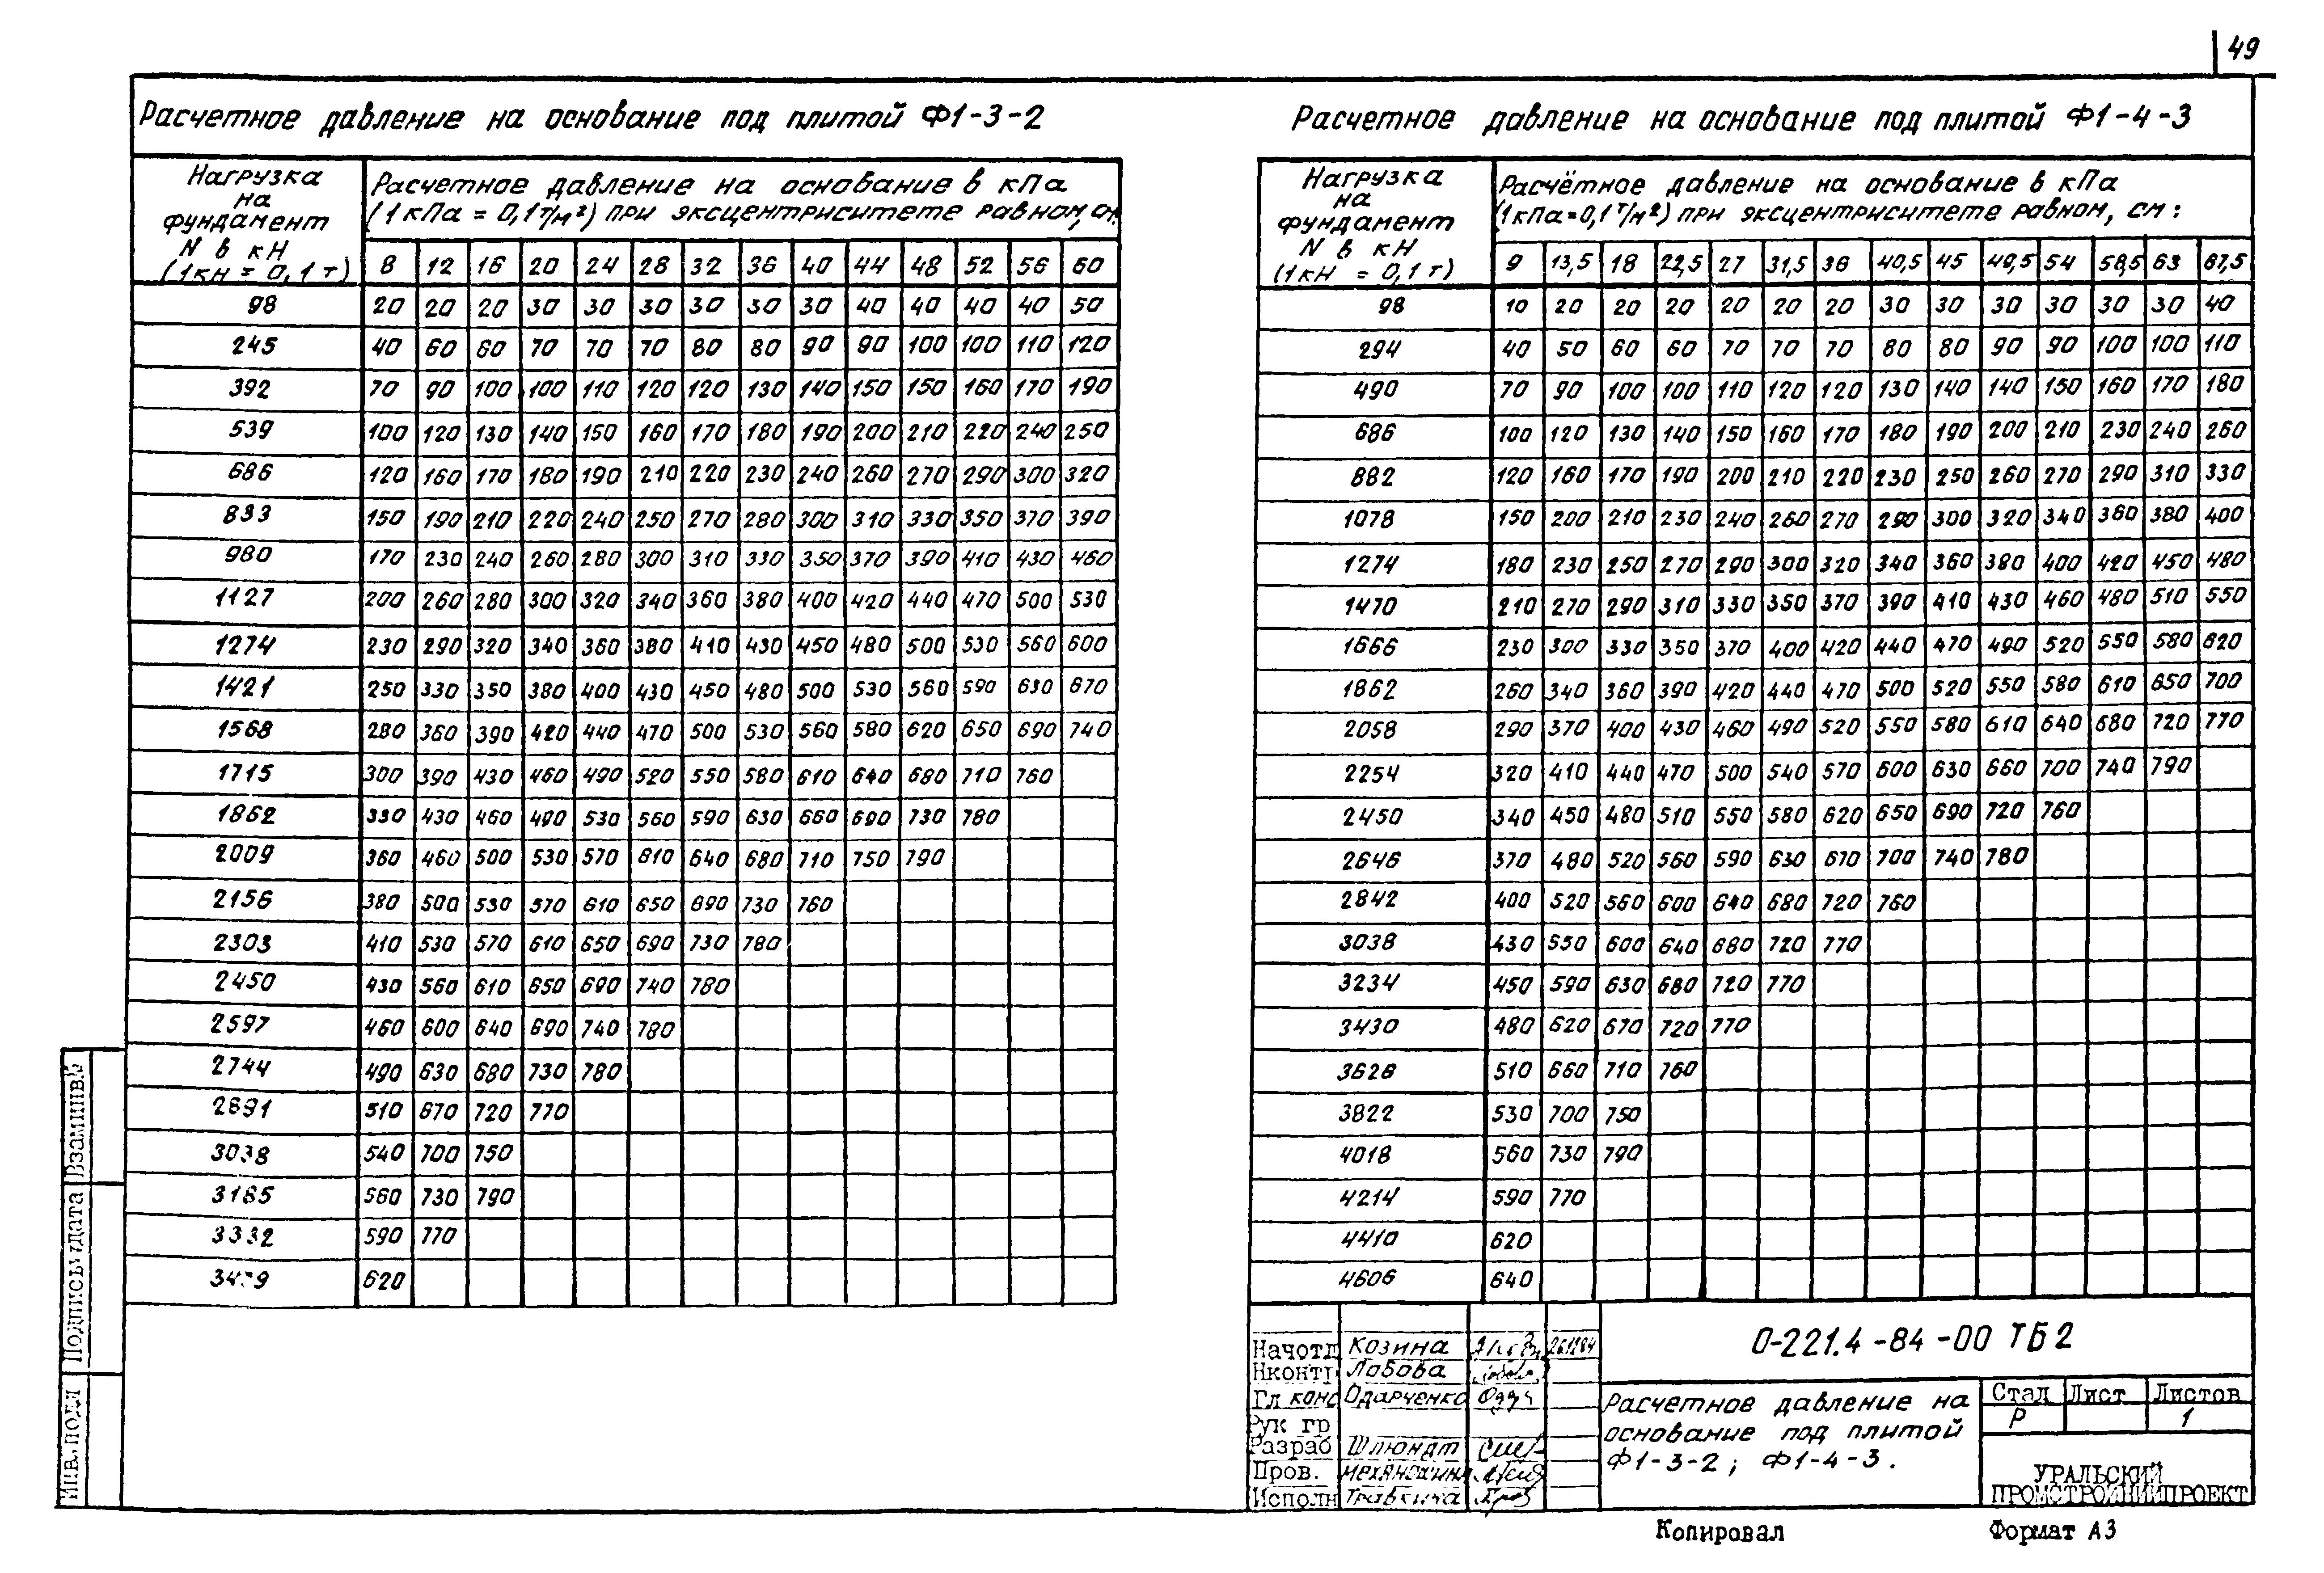 49
Расчетное давление на основание под плитой Ф1-3-2
Нагрузка на фундамент N в кН (1кН = 0,1т)
Расчетное давление на основание в кПа
(1кПа = 0,1т/м²) при эксцентриситете равном, см
8 12 16 20 24 28 32 36 40 44 48 52 56 60
98 20 20 20 30 30 30 30 30 30 40 40 40 40 50
245 40 60 60 70 70 70 80 80 90 90 100 100 110 120
392 70 90 100 100 110 120 120 130 140 150 150 160 170 190
539 100 120 130 140 150 160 170 180 190 200 210 220 240 250
686 120 160 170 180 190 210 220 230 240 260 270 290 300 320
833 150 190 210 220 240 250 270 280 300 310 330 350 370 390
980 170 230 240 260 280 300 310 330 350 370 390 410 430 460
1127 200 260 280 300 320 340 360 380 400 420 440 470 500 530
1274 230 290 320 340 360 380 410 430 450 480 500 530 560 600
1421 250 330 350 380 400 430 450 480 500 530 560 590 630 670
1568 280 360 390 420 440 470 500 530 560 580 620 650 690 740
1715 300 390 430 460 490 520 550 580 610 640 680 710 760
1862 330 430 460 490 530 560 590 630 660 690 730 780
2009 360 460 500 530 570 610 640 680 710 750 790
2156 380 500 530 570 610 650 690 730 760
2303 410 530 570 610 650 690 730 780
2450 430 560 610 650 690 740 780
2597 460 600 640 690 740 780
2744 490 630 680 730 780
2891 510 670 720 770
3038 540 700 750
3185 560 730 790
3332 590 770
620
Расчетное давление на основание под плитой Ф1-4-3
Нагрузка на фундамент N в кН (1кН = 0,1т)
Расчётное давление на основание в кПа
(1кПа=0,1т/м²) при эксцентриситете равном, см:
9 13,5 18 22,5 27 31,5 36 40,5 45 49,5 54 58,5 63 67,5
98 10 20 20 20 20 20 20 30 30 30 30 30 30 40
294 40 50 60 60 70 70 70 80 80 90 90 100 100 110
490 70 90 100 100 110 120 120 130 140 140 150 160 170 180
686 100 120 130 140 150 160 170 180 190 200 210 230 240 260
882 120 160 170 190 200 210 220 230 250 260 270 290 310 330
1078 150 200 210 230 240 260 270 290 300 320 340 360 380 400
1274 180 230 250 270 290 300 320 340 360 380 400 420 450 480
1470 210 270 290 310 330 350 370 390 410 430 460 480 510 550
1666 230 300 330 350 370 400 420 440 470 490 520 550 580 620
1862 260 340 360 390 420 440 470 500 520 550 580 610 650 700
2058 290 370 400 430 460 490 520 550 580 610 640 680 720 770
2254 320 410 440 470 500 540 570 600 630 660 700 740 790
2450 340 450 480 510 550 580 620 650 690 720 760
2646 370 480 520 560 590 630 670 700 740 780
2842 400 520 560 600 640 680 720 760
3038 430 550 600 640 680 720 770
3234 450 590 630 680 720 770
3430 480 620 670 720 770
3626 510 660 710 760
3822 530 700 750
4018 560 730 790
4214 590 770
4410 620
4606 640
Инв.подл Подпись дата Взаминв.№
Начотд Козина
Нконтр Лобова
Гл конс Одарченко
Рук гр
Разраб Шлюндт
Пров.
Исполн Травкина
0-221.4-84-00 ТБ2
Расчетное давление на
основание под плитой
Ф1-3-2; Ф1-4-3.
Стад Лист Листов
Р 1
УРАЛЬСКИЙ
ПРОМСТРОЙНИИПРОЕКТ
Копировал Формат А3